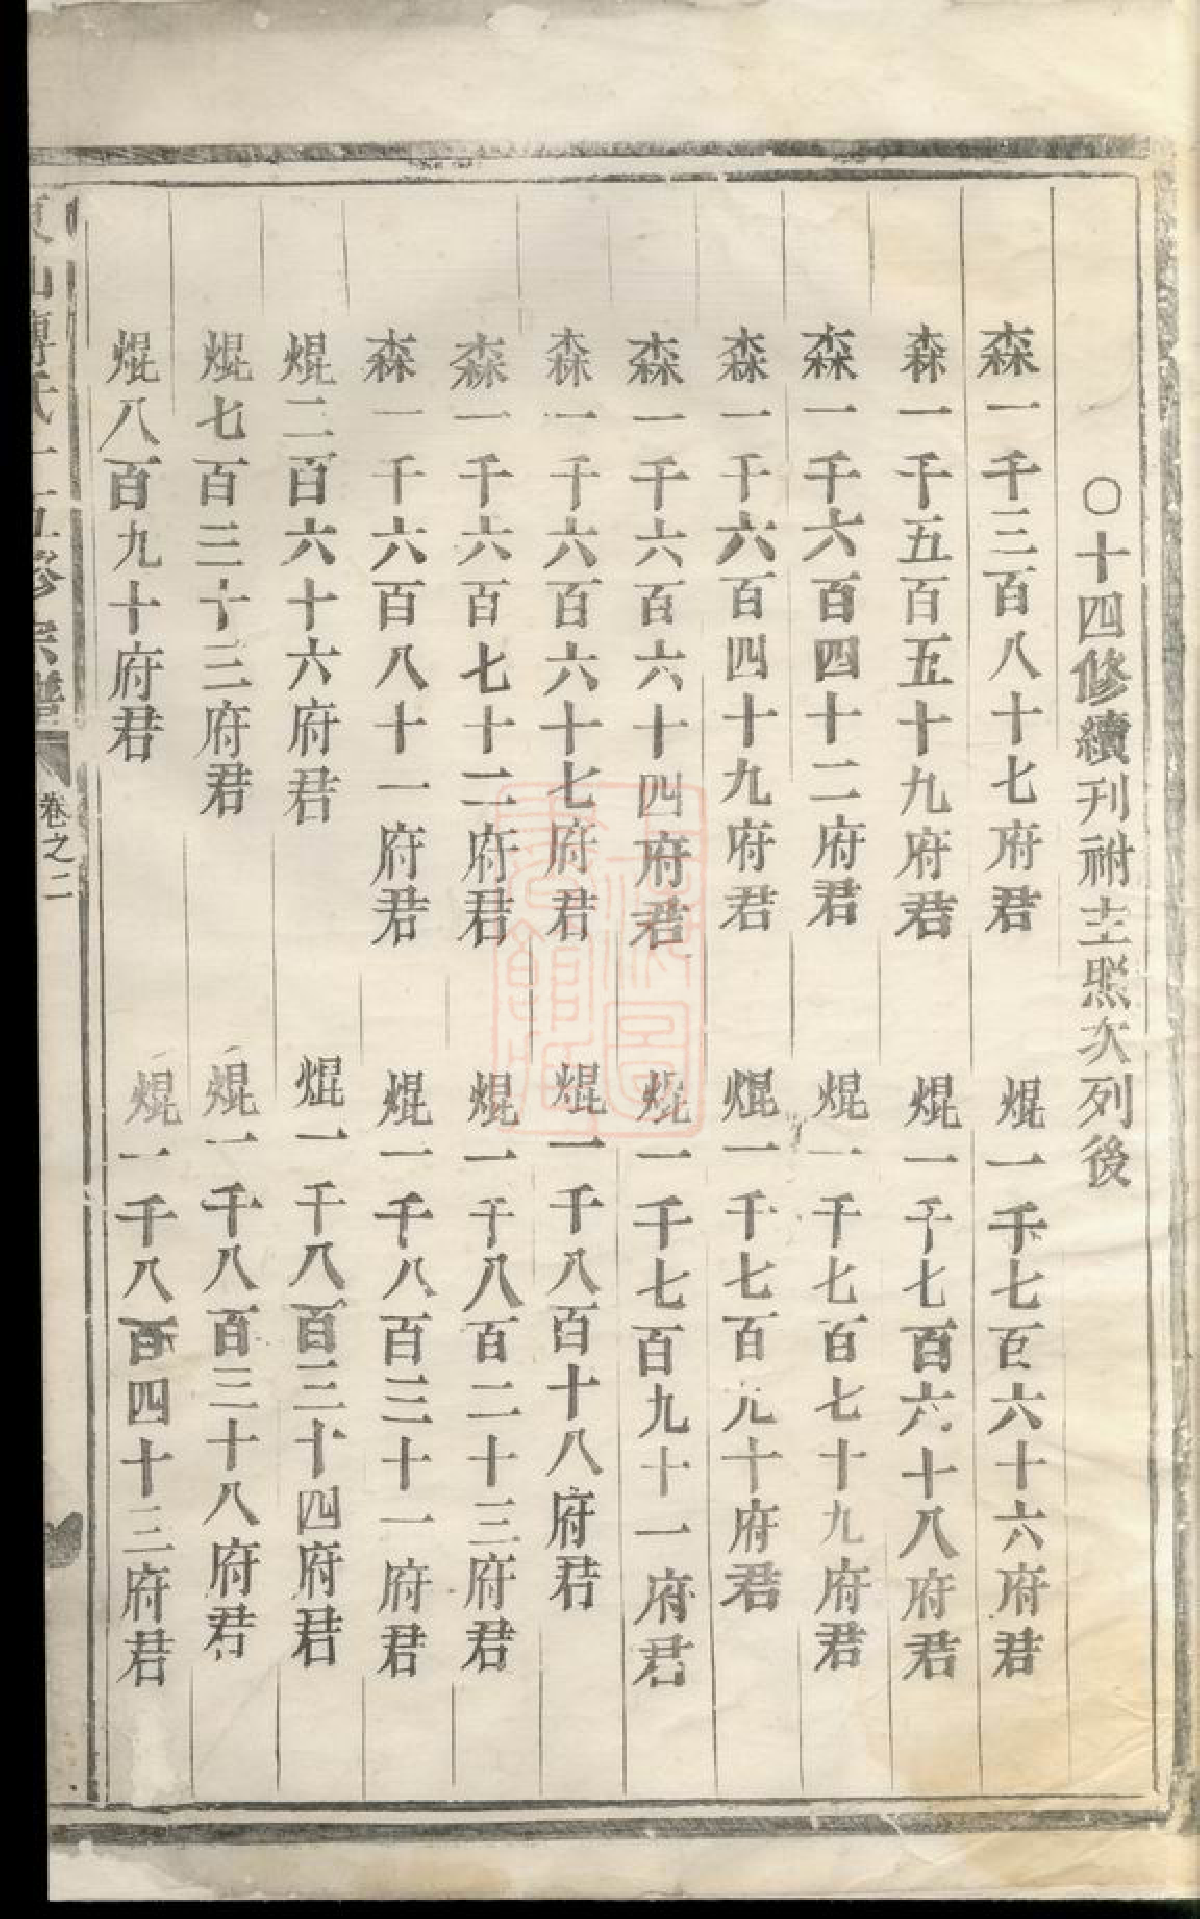 〇十四修續刊祔主照次列後
森一千三百八十七府君　焜一千七百六十六府君
森一千五百五十九府君　焜一千七百六十八府君
森一千六百四十二府君　焜一千七百七十九府君
森一千六百四十九府君　焜一千七百九十府君
森一千六百六十四府君　焜一千七百九十一府君
森一千六百六十七府君　焜一千八百十八府君
森一千六百七十二府君　焜一千八百二十三府君
森一千六百八十一府君　焜一千八百三十一府君
焜二百六十六府君　焜一千八百三十四府君
焜七百三十三府君　焜一千八百三十八府君
焜八百九十府君　焜一千八百四十三府君
卷之二